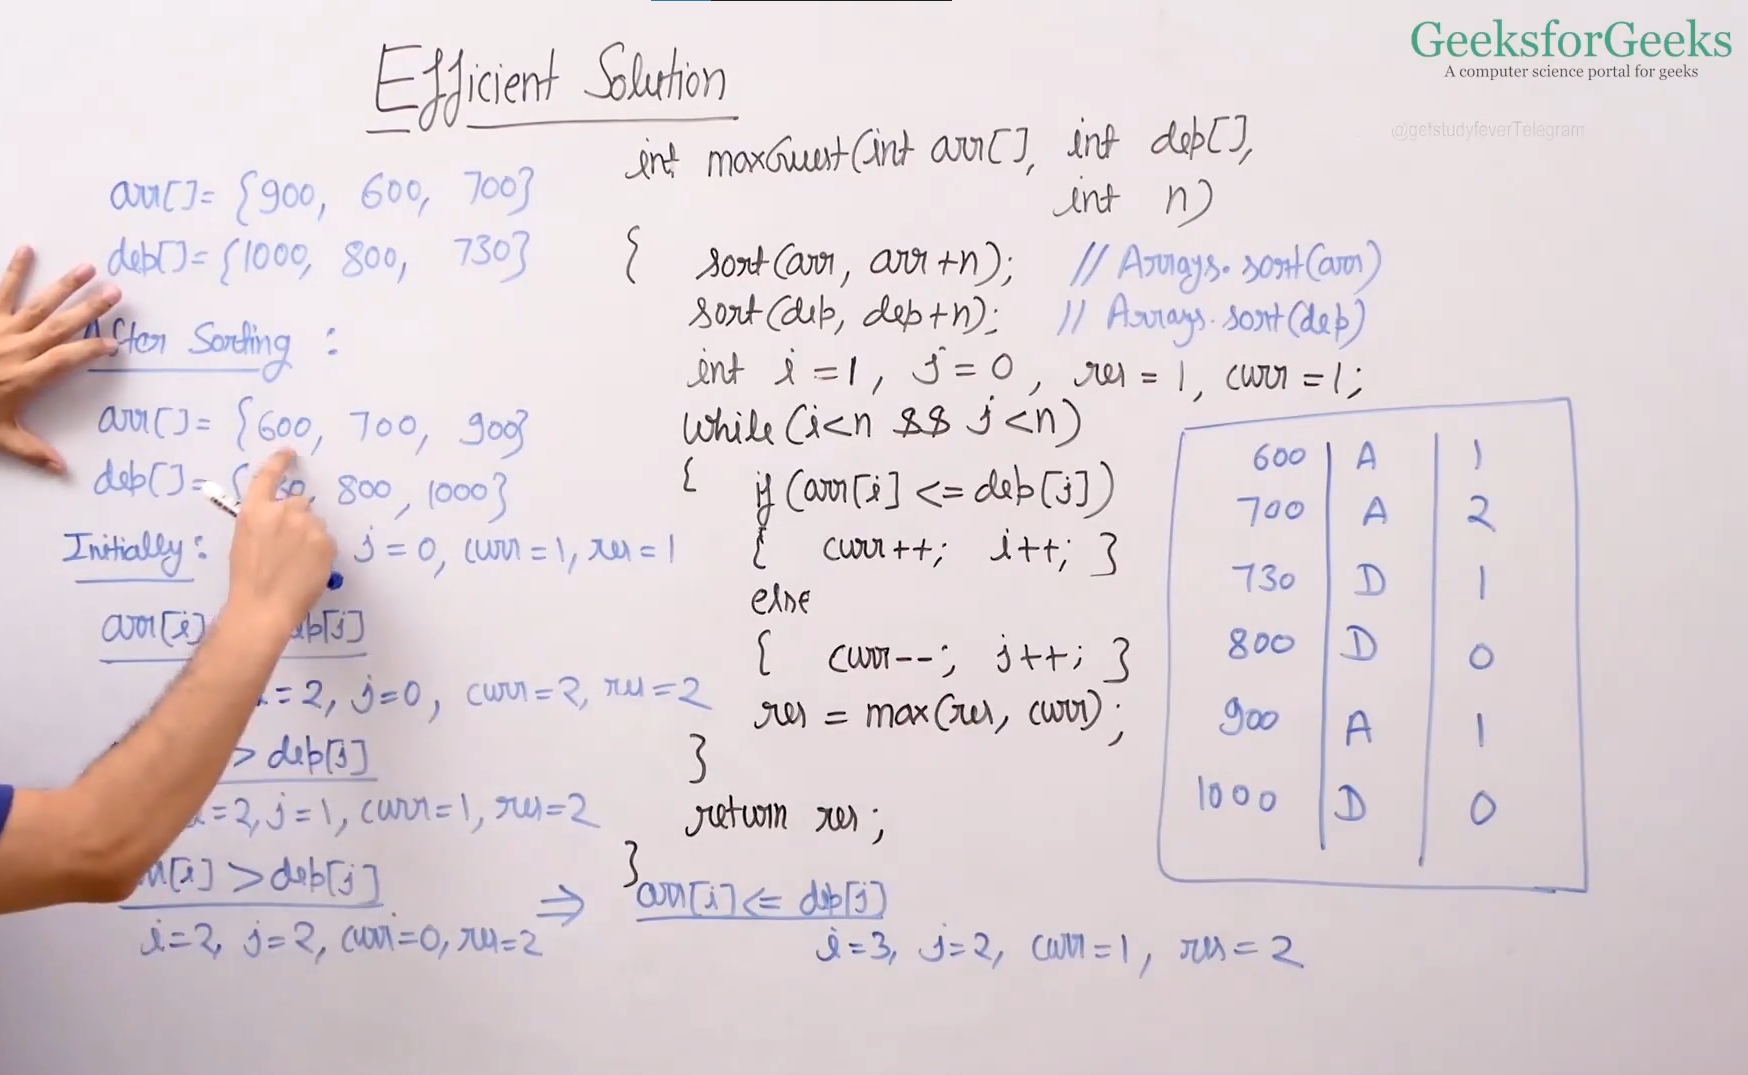 GeeksforGeeks
A computer science portal for geeks
@getstudyfeverTelegram
Efficient Solution
arr[] = {900, 600, 700}
dep[] = {1000, 800, 730}
After Sorting :
arr[] = {600, 700, 900}
dep[] = { , 800, 1000}
Initially: j = 0, curr = 1, res = 1
arr[i] dep[j]
i = 2, j = 0, curr = 2, res = 2
> dep[j]
i = 2, j = 1, curr = 1, res = 2
arr[i] > dep[j]
i = 2, j = 2, curr = 0, res = 2
⇒ arr[i] <= dep[j]
i = 3, j = 2, curr = 1, res = 2
int maxGuest(int arr[], int dep[],
int n)
{ sort(arr, arr+n); // Arrays.sort(arr)
sort(dep, dep+n); // Arrays.sort(dep)
int i = 1, j = 0, res = 1, curr = 1;
while (i<n && j<n)
{ if (arr[i] <= dep[j])
{ curr++; i++; }
else
{ curr--; j++; }
res = max(res, curr);
}
return res;
}
600 | A | 1
700 | A | 2
730 | D | 1
800 | D | 0
900 | A | 1
1000 | D | 0